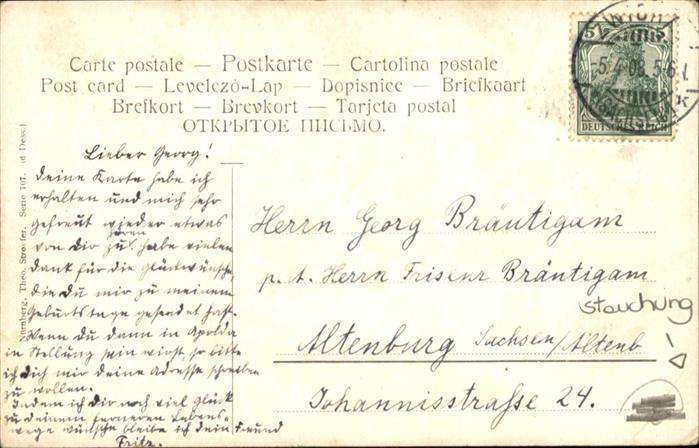 Carte postale — Postkarte — Cartolina postale
Post card — Levelező-Lap — Dopisnice — Briefkaart
Brefkort — Brevkort — Tarjeta postal
ОТКРЫТОЕ ПИСЬМО.
5
DEUTSCHES REICH
K
Theo. Stroefer. Serie 707.
Lieber Georg!
deine Karte habe ich
erhalten und mich sehr
gefreut wieder etwas
von dir zu hören habe vielen
dank für die Glückwünsche
die du mir zu meinem
Geburtstage gesendet hast.
Wenn du dann in Apolda
in Stellung sein wirst so bitte
ich dich mir deine Adresse schreiben
zu wollen.
Indem ich dir noch viel Glück
zu deinem ferneren Lebens-
wege wünsche bleibe ich dein Freund
Fritz.
Herrn Georg Bräutigam
p. A. Herrn Friseur Bräutigam
Altenburg Sachsen/Altenb
Johannisstraße 24.
Stauchung